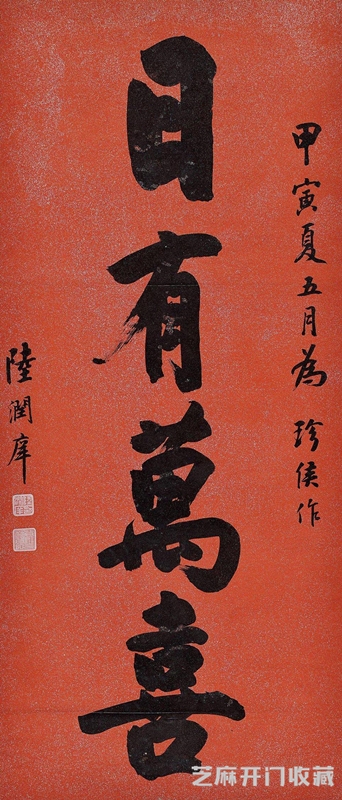 甲寅夏五月為 珍侯作
日有萬喜
陸潤庠
芝麻开门收藏